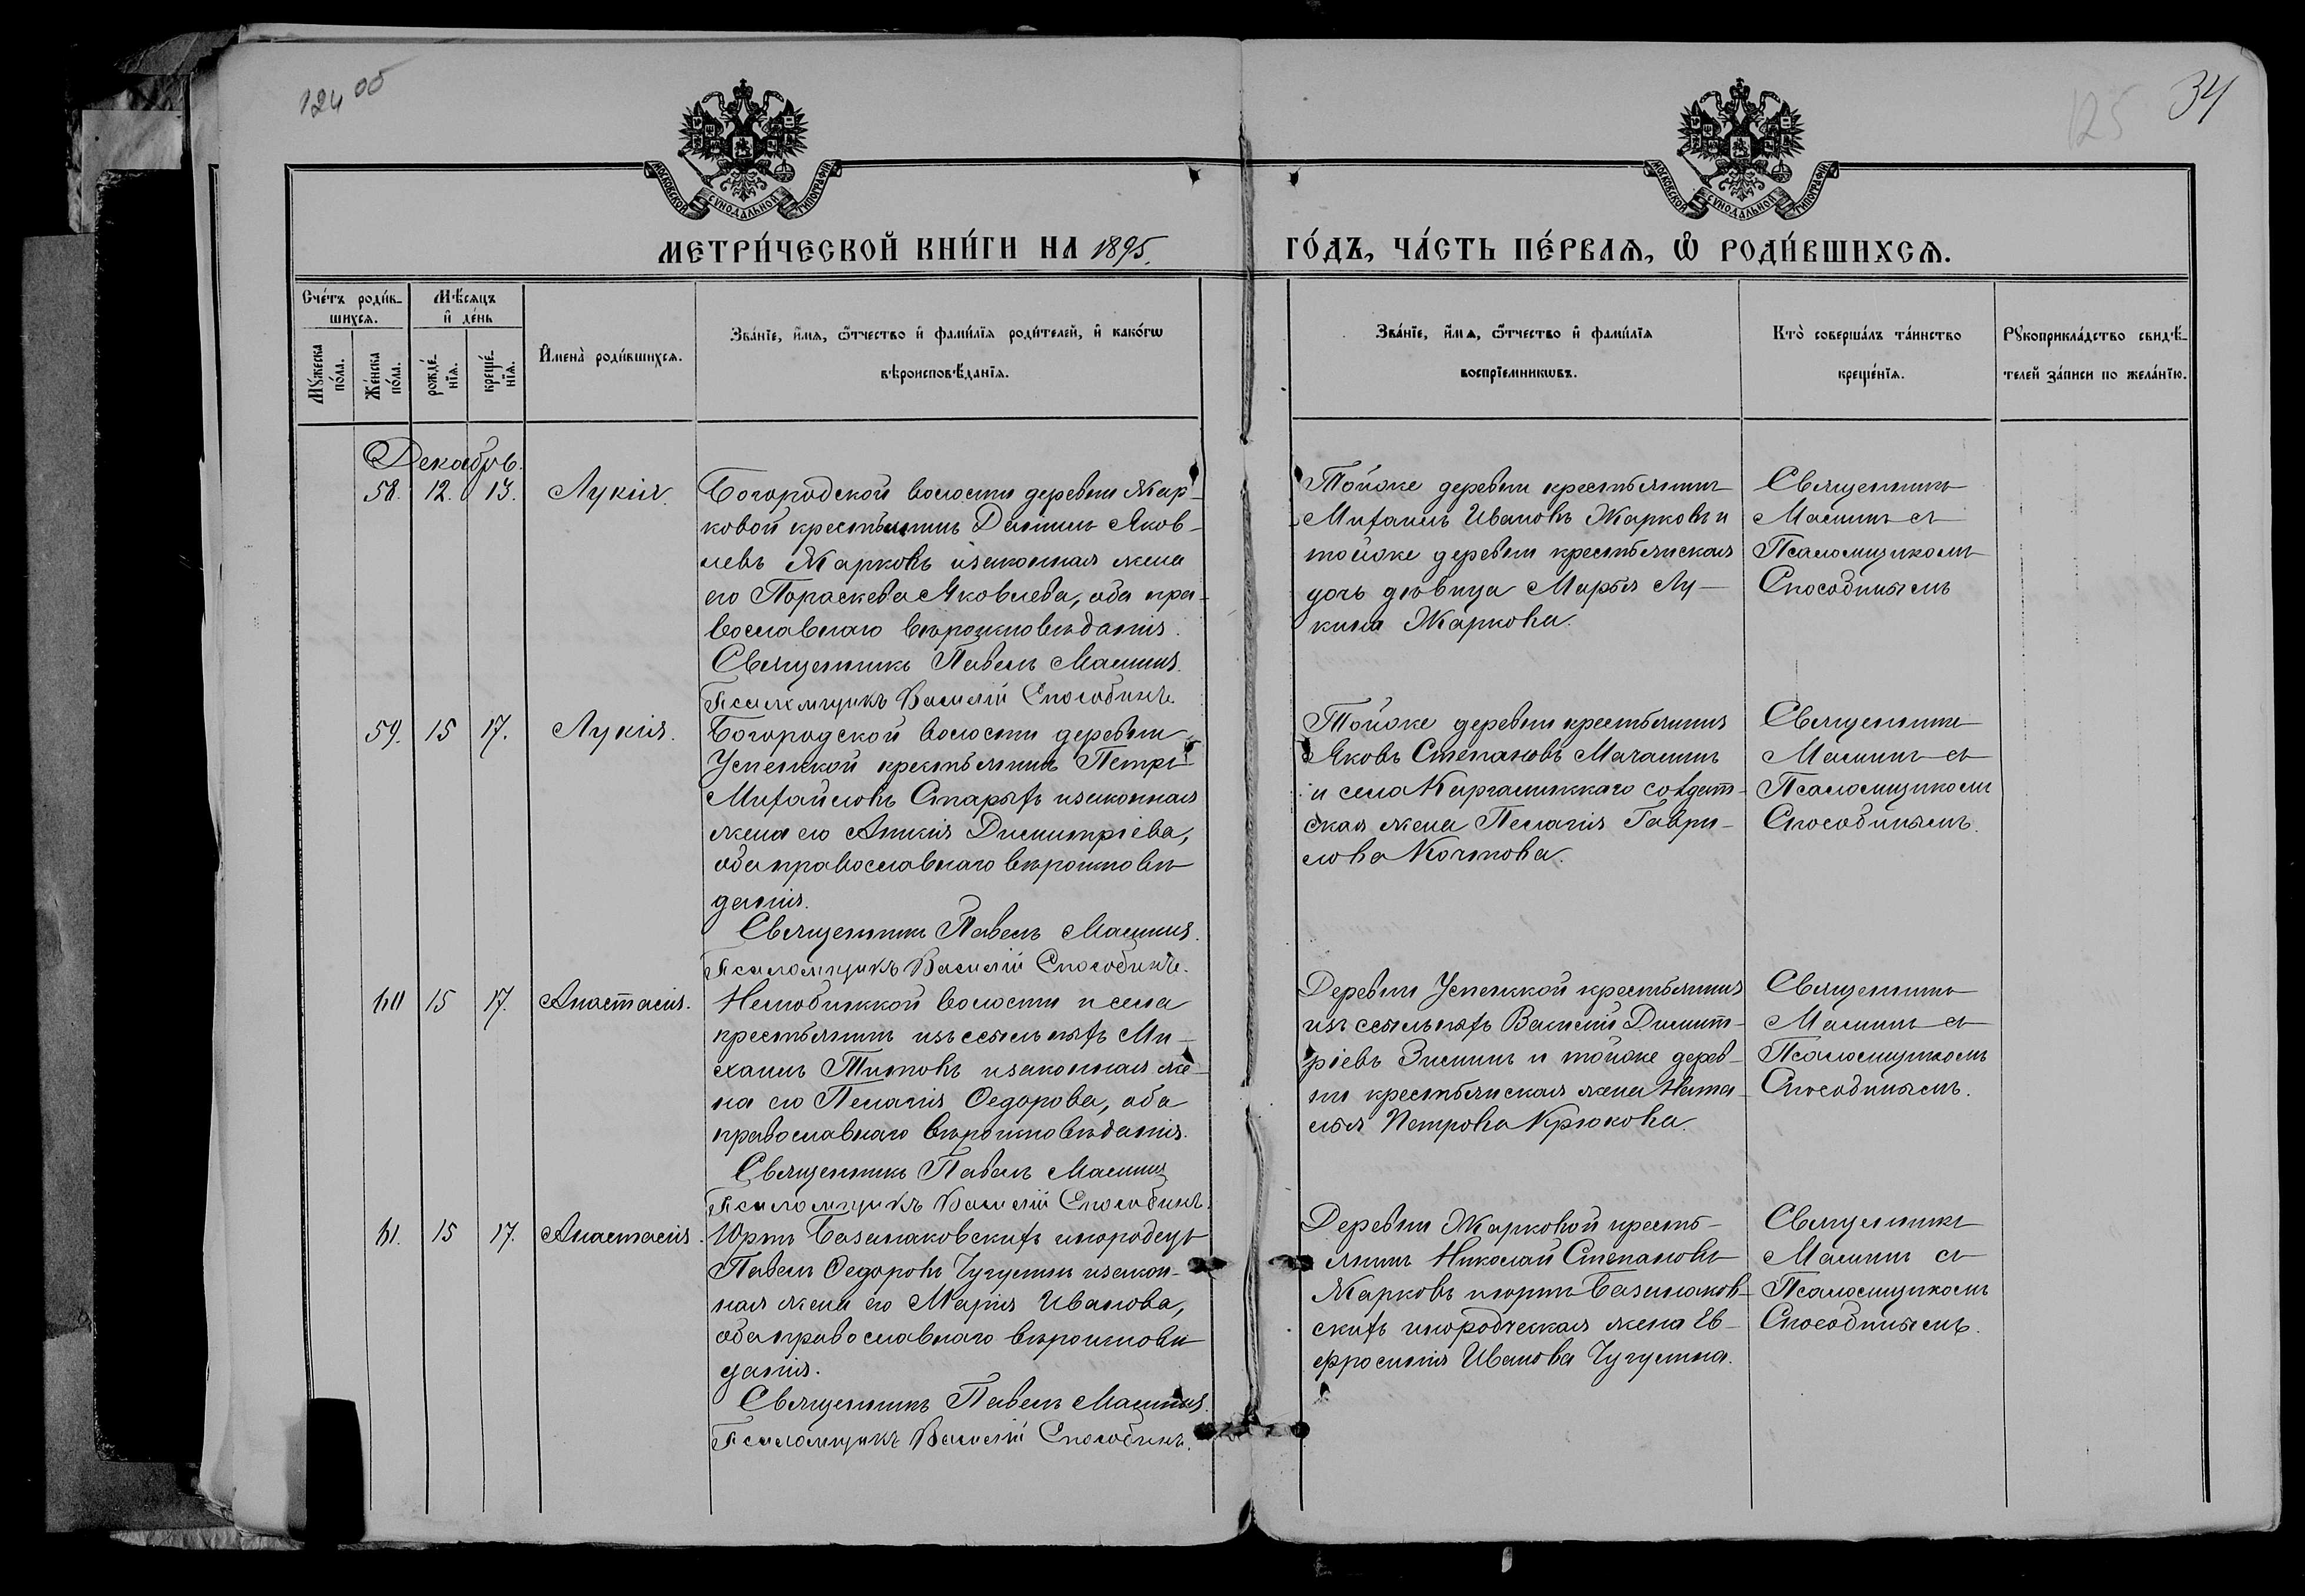 124 об
125
34
МОСКОВСКОЙ СѴНОДАЛЬНОЙ ТИПОГРАФІИ
МОСКОВСКОЙ СѴНОДАЛЬНОЙ ТИПОГРАФІИ
МЕТРИ́ЧЕСКОЙ КНИ́ГИ НА 1895.
ГО́ДЪ, ЧА́СТЬ ПЕ́РВАѦ, Ѿ РОДИ́ВШИХСѦ.
Сче́тъ роди́в-
шихсѧ.
Мѣ́сѧцъ
и҆ де́нь
Мꙋ́жеска
по́ла.
Же́нска
по́ла.
рожде́-
нїѧ.
креще́-
нїѧ.
И҆мена̀ роди́вшихсѧ.
Зва́нїе, и҆́мѧ, ѻ҆́тчество и҆ фами́лїѧ роди́телей, и҆ како́гѡ
вѣроисповѣ́данїѧ.
Зва́нїе, и҆́мѧ, ѻ҆́тчество и҆ фами́лїѧ
воспрїе́мникѡвъ.
Кто̀ соверша́лъ та́инство
креще́нїѧ.
Рꙋкоприкла́дство свидѣ́-
телей за́писи по жела́нїю.
Декабрь.
58. 12. 13. Лукія.
Богородской волости деревни Жар-
ковой крестьянинъ Даніилъ Яков-
левъ Жарковъ и законная жена
его Параскева Яковлева, оба пра-
вославнаго вѣроисповѣданія.
Священникъ Павелъ Машинъ.
Псаломщикъ Василій Способинъ.
Тойже деревни крестьянинъ
Михаилъ Ивановъ Жарковъ и
тойже деревни крестьянская
дочь дѣвица Марья Лу-
кина Жаркова.
Священникъ
Машинъ съ
Псаломщикомъ
Способинымъ
59. 15 17. Лукія.
Богородской волости деревни
Успенской крестьянинъ Петръ
Михайловъ Старыхъ и законная
жена его Анисія Димитріева,
оба православнаго вѣроисповѣ
данія.
Священникъ Павелъ Машинъ.
Псаломщикъ Василій Способинъ.
Тойже деревни крестьянинъ
Яковъ Степановъ
и села солдат-
ская жена Пелагія Гаври-
лова
Священникъ
Машинъ съ
Псаломщикомъ
Способинымъ.
60 15 17. Анастасія.
Нелюбинской волости и села
крестьянинъ изъ ссыльныхъ Ми-
хаилъ Титовъ и законная же-
на его Пелагія Ѳедорова, оба
православнаго вѣроисповѣданія.
Священникъ Павелъ Машинъ
Псаломщикъ Василій Способинъ.
Деревни Успенской крестьянинъ
изъ ссыльныхъ Василій Димит-
ріевъ Зиминъ и тойже дерев-
ни крестьянская жена Ната-
лья Петрова Крюкова.
Священникъ
Машинъ съ
Псаломщикомъ
Способинымъ.
61. 15 17. Анастасія.
Юртъ Казанаковскихъ инородецъ
Павелъ Ѳедоровъ Чугунинъ и закон-
ная жена его Марія Иванова,
оба православнаго вѣроисповѣ
данія.
Священникъ Павелъ Машинъ.
Псаломщикъ Василій Способинъ.
Деревни Жарковой кресть-
янинъ Николай Степановъ
Жарковъ и юртъ
скихъ инородческая жена Ев-
фросинія Иванова
Священникъ
Машинъ съ
Псаломщикомъ
Способинымъ.